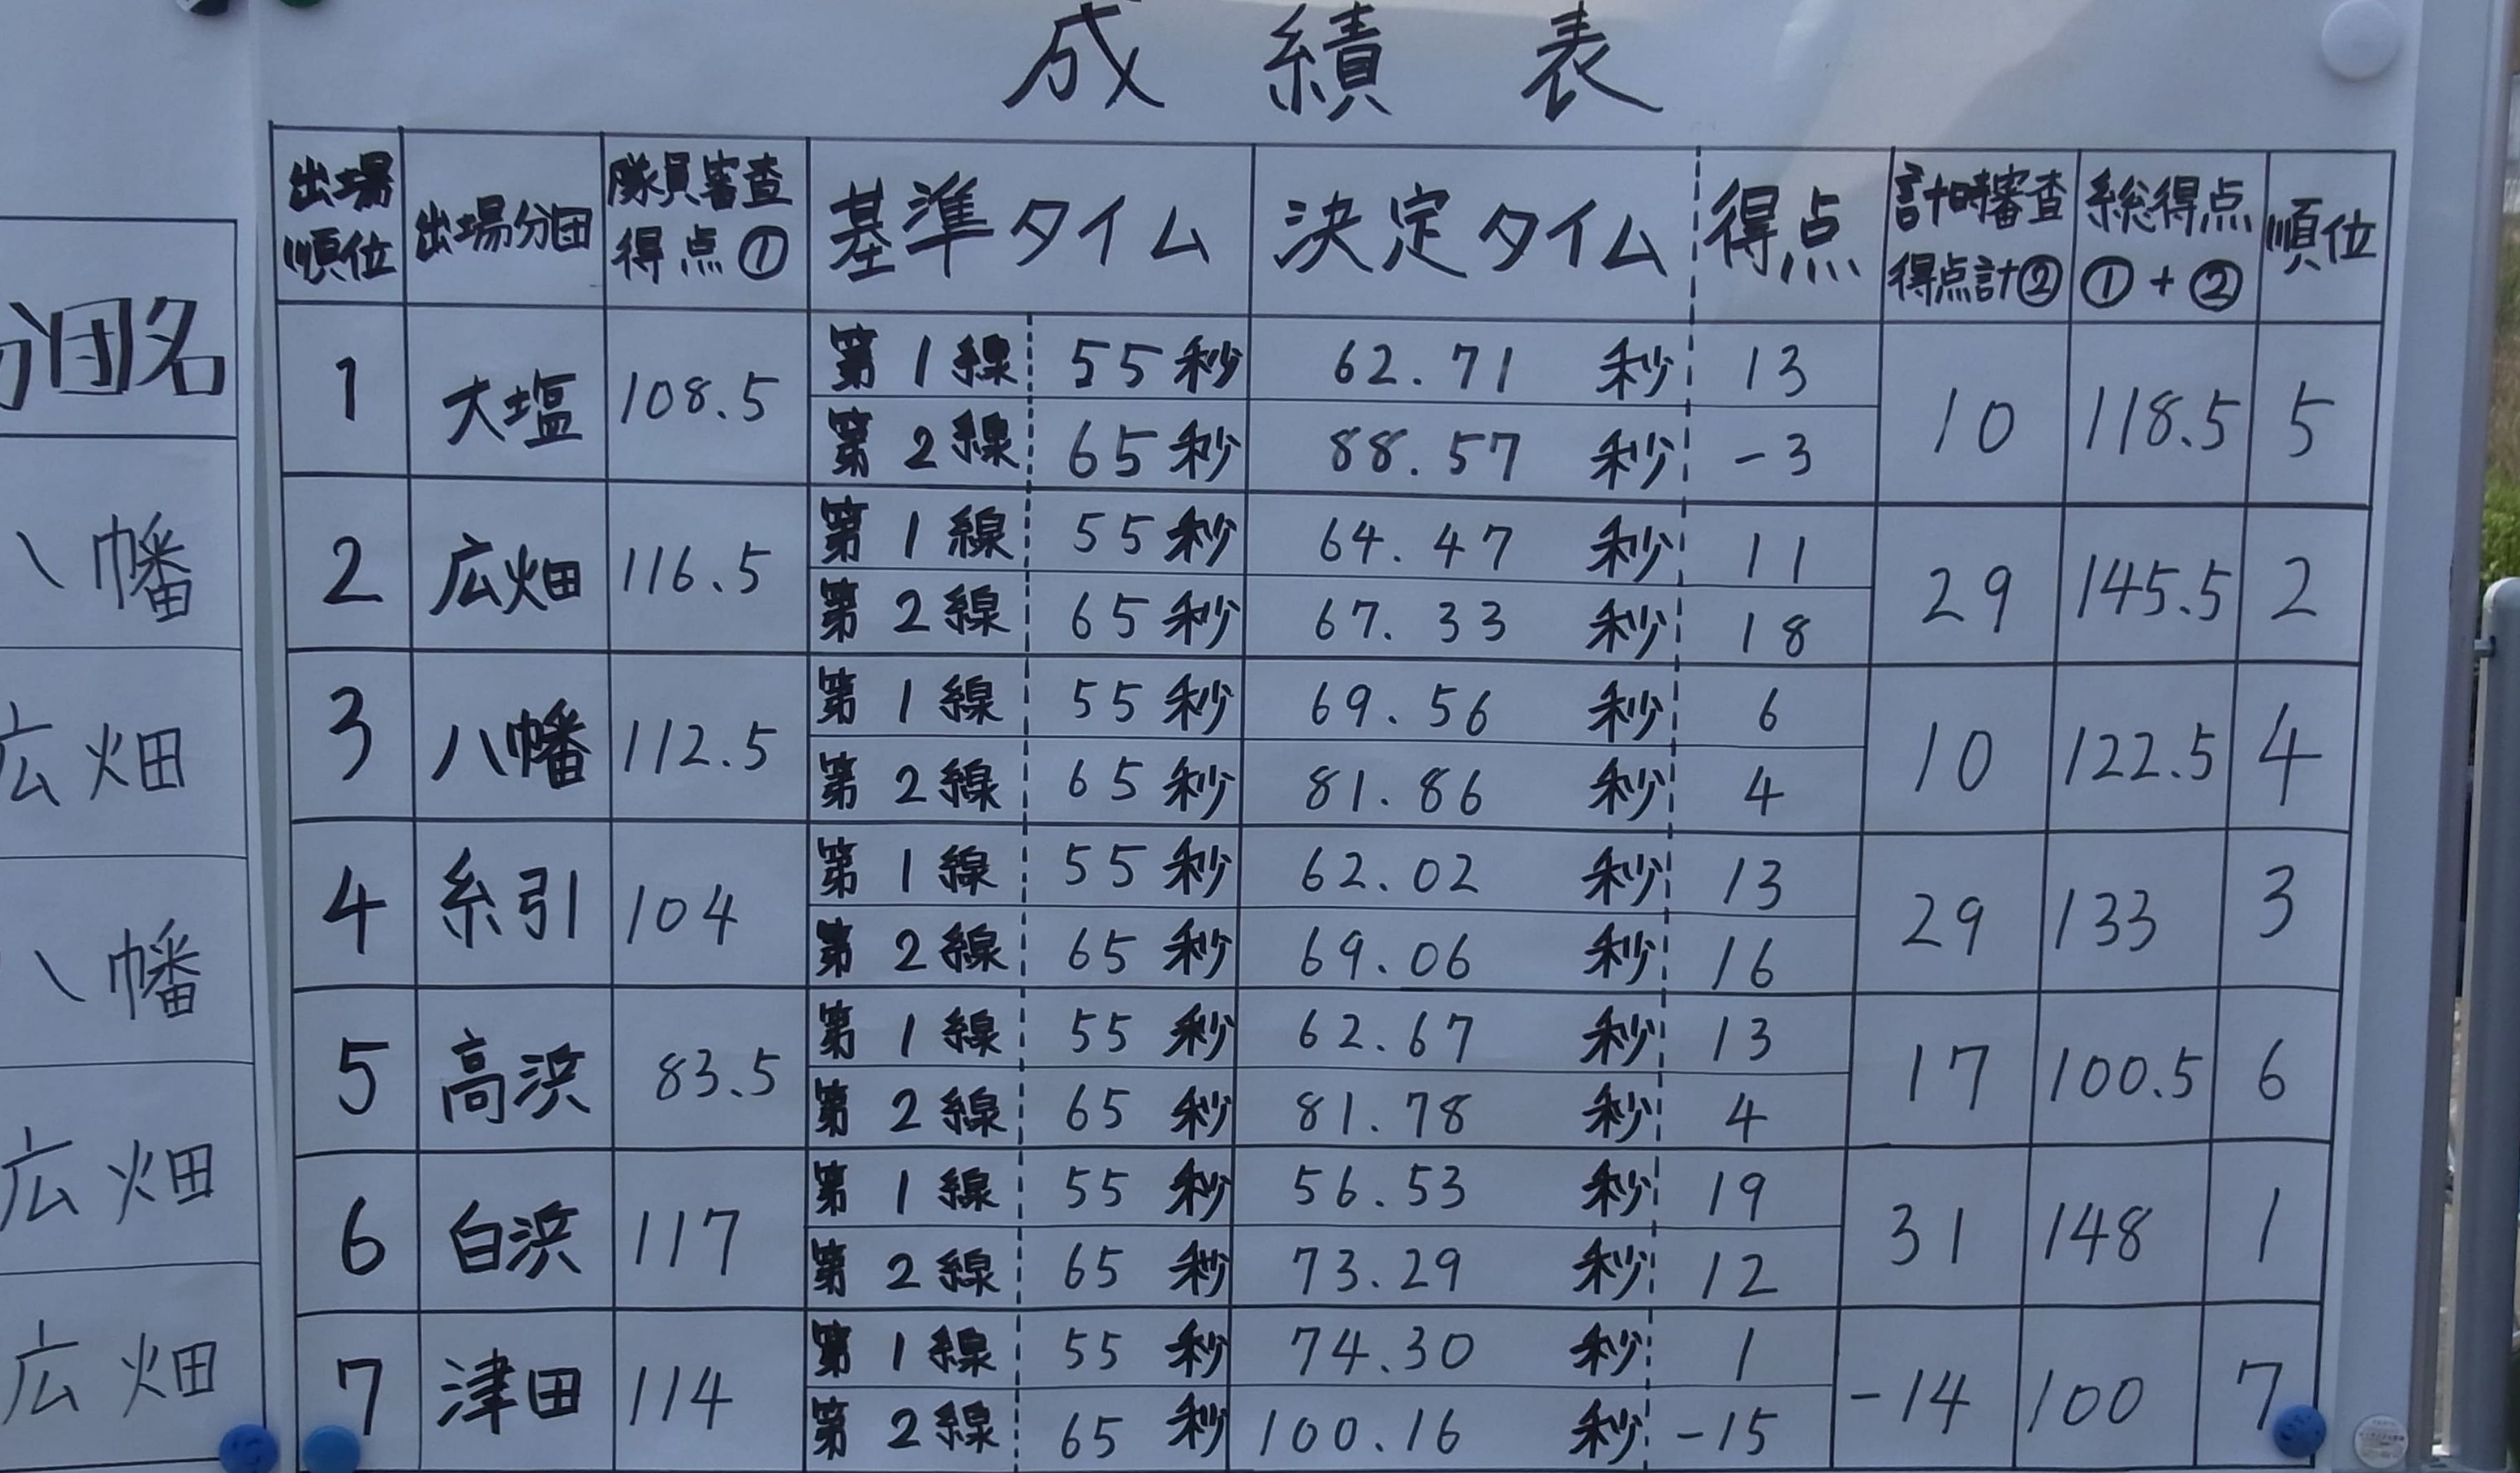 成績表
出場順位 出場分団 隊員審査得点① 基準タイム 決定タイム 得点 計時審査得点計② 総得点①+② 順位
1 大塩 108.5 第1線 55秒 62.71 秒 13 10 118.5 5
第2線 65秒 88.57 秒 -3
2 広畑 116.5 第1線 55秒 64.47 秒 11 29 145.5 2
第2線 65秒 67.33 秒 18
3 八幡 112.5 第1線 55秒 69.56 秒 6 10 122.5 4
第2線 65秒 81.86 秒 4
4 糸引 104 第1線 55秒 62.02 秒 13 29 133 3
第2線 65秒 69.06 秒 16
5 高浜 83.5 第1線 55秒 62.67 秒 13 17 100.5 6
第2線 65秒 81.78 秒 4
6 白浜 117 第1線 55秒 56.53 秒 19 31 148 1
第2線 65秒 73.29 秒 12
7 津田 114 第1線 55秒 74.30 秒 1 -14 100 7
第2線 65秒 100.16 秒 -15
分団名
八幡
広畑
八幡
広畑
広畑